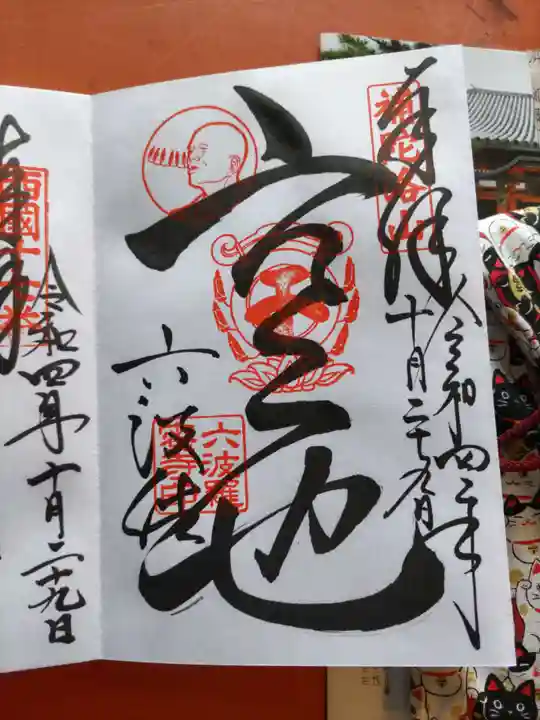 奉拝
補陀洛山
令和四年
十月二十九日
空也
六波羅
六波羅
蜜寺印
西國十七番
令和四年十月二十九日